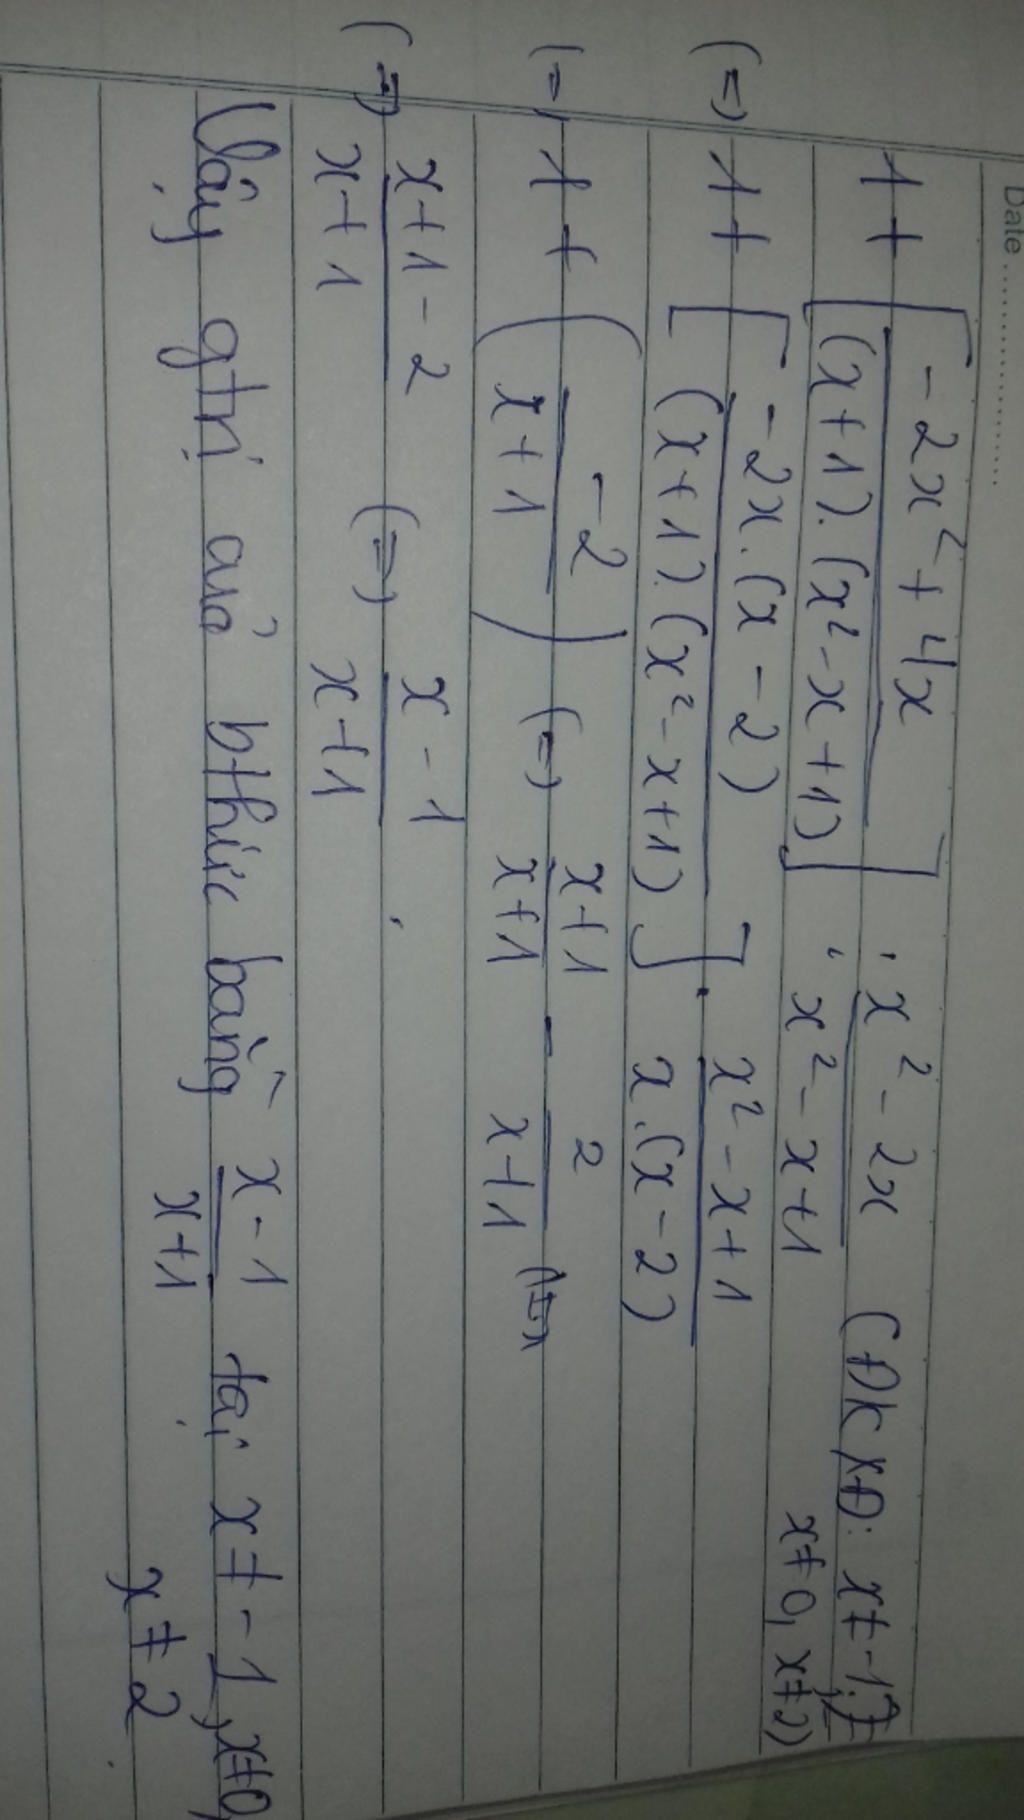 Date ..................
1 + [ (-2x² + 4x) / ((x+1).(x²-x+1)) ] : (x² - 2x) / (x² - x + 1) (ĐKXĐ: x ≠ -1, x ≠ 0, x ≠ 2)
(=) 1 + [ (-2x.(x-2)) / ((x+1).(x²-x+1)) ] . (x² - x + 1) / (x.(x-2))
(=) 1 + ( -2 / (x+1) ) (=) (x+1) / (x+1) - 2 / (x+1) (=)
(=) (x+1-2) / (x+1) (=) (x-1) / (x+1) .
Vậy gtrị của bthức bằng (x-1) / (x+1) tại x ≠ -1, x ≠ 0,
x ≠ 2